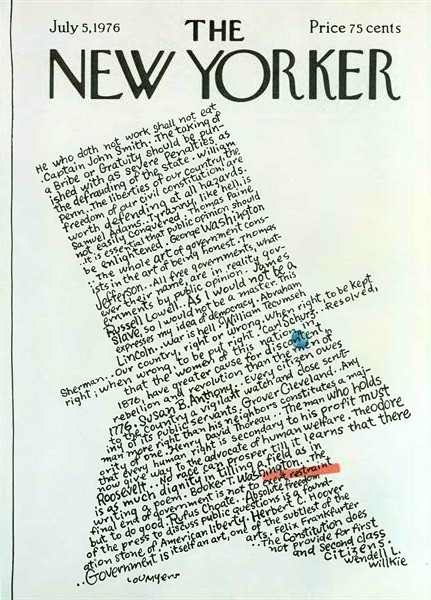 July 5, 1976
THE
Price 75 cents
NEW YORKER
He who doth not work shall not eat
Captain John Smith. The taking of
a Bribe or Gratuity should be pun-
ished with as severe penalties as
the defrauding of the State. William
Penn. The liberties of our country, the
freedom of our civil constitution, are
worth defending at all hazards.
Samuel Adams. Tyranny, like hell, is
not easily conquered. Thomas Paine
..it is essential that public opinion should
be enlightened. George Washington
The whole art of government cons-
ists in the art of being honest. Thomas
Jefferson. All free governments, what-
ever their name, are in reality gov-
ernments by public opinion. James
Russell Lowell. As I would not be a
slave, so I would not be a master. This
expresses my idea of democracy. Abraham
Lincoln. War is hell. William Tecumseh
Sherman.. Our country, right or wrong. When right, to be kept
right; when wrong, to be put right. Carl Schurz. Resolved,
that the women of this nation in
1876, had greater cause for discontent,
rebellion and revolution than the men of
1776. Susan B. Anthony. Every citizen owes
to the country a vigilant watch and close scrut-
iny of its public servants. Grover Cleveland. Any
man more right than his neighbors constitutes a maj-
ority of one. Henry David Thoreau. The man who holds
that every human right is secondary to his profit must
now give way to the advocate of human welfare. Theodore
Roosevelt. No race can prosper till it learns that there
is as much dignity in tilling a field as in
writing a poem. Booker T. Washington. The
final end of Government is not to exert restraint
but to do good. Rufus Choate. Absolute freedom
of the press to discuss public questions is a found-
ation stone of American liberty. Herbert C. Hoover
..Government is itself an art, one of the subtlest of the
arts. Felix Frankfurter
..The Constitution does
not provide for first
and second class
citizens.
Wendell L.
Willkie
LOU MYERS